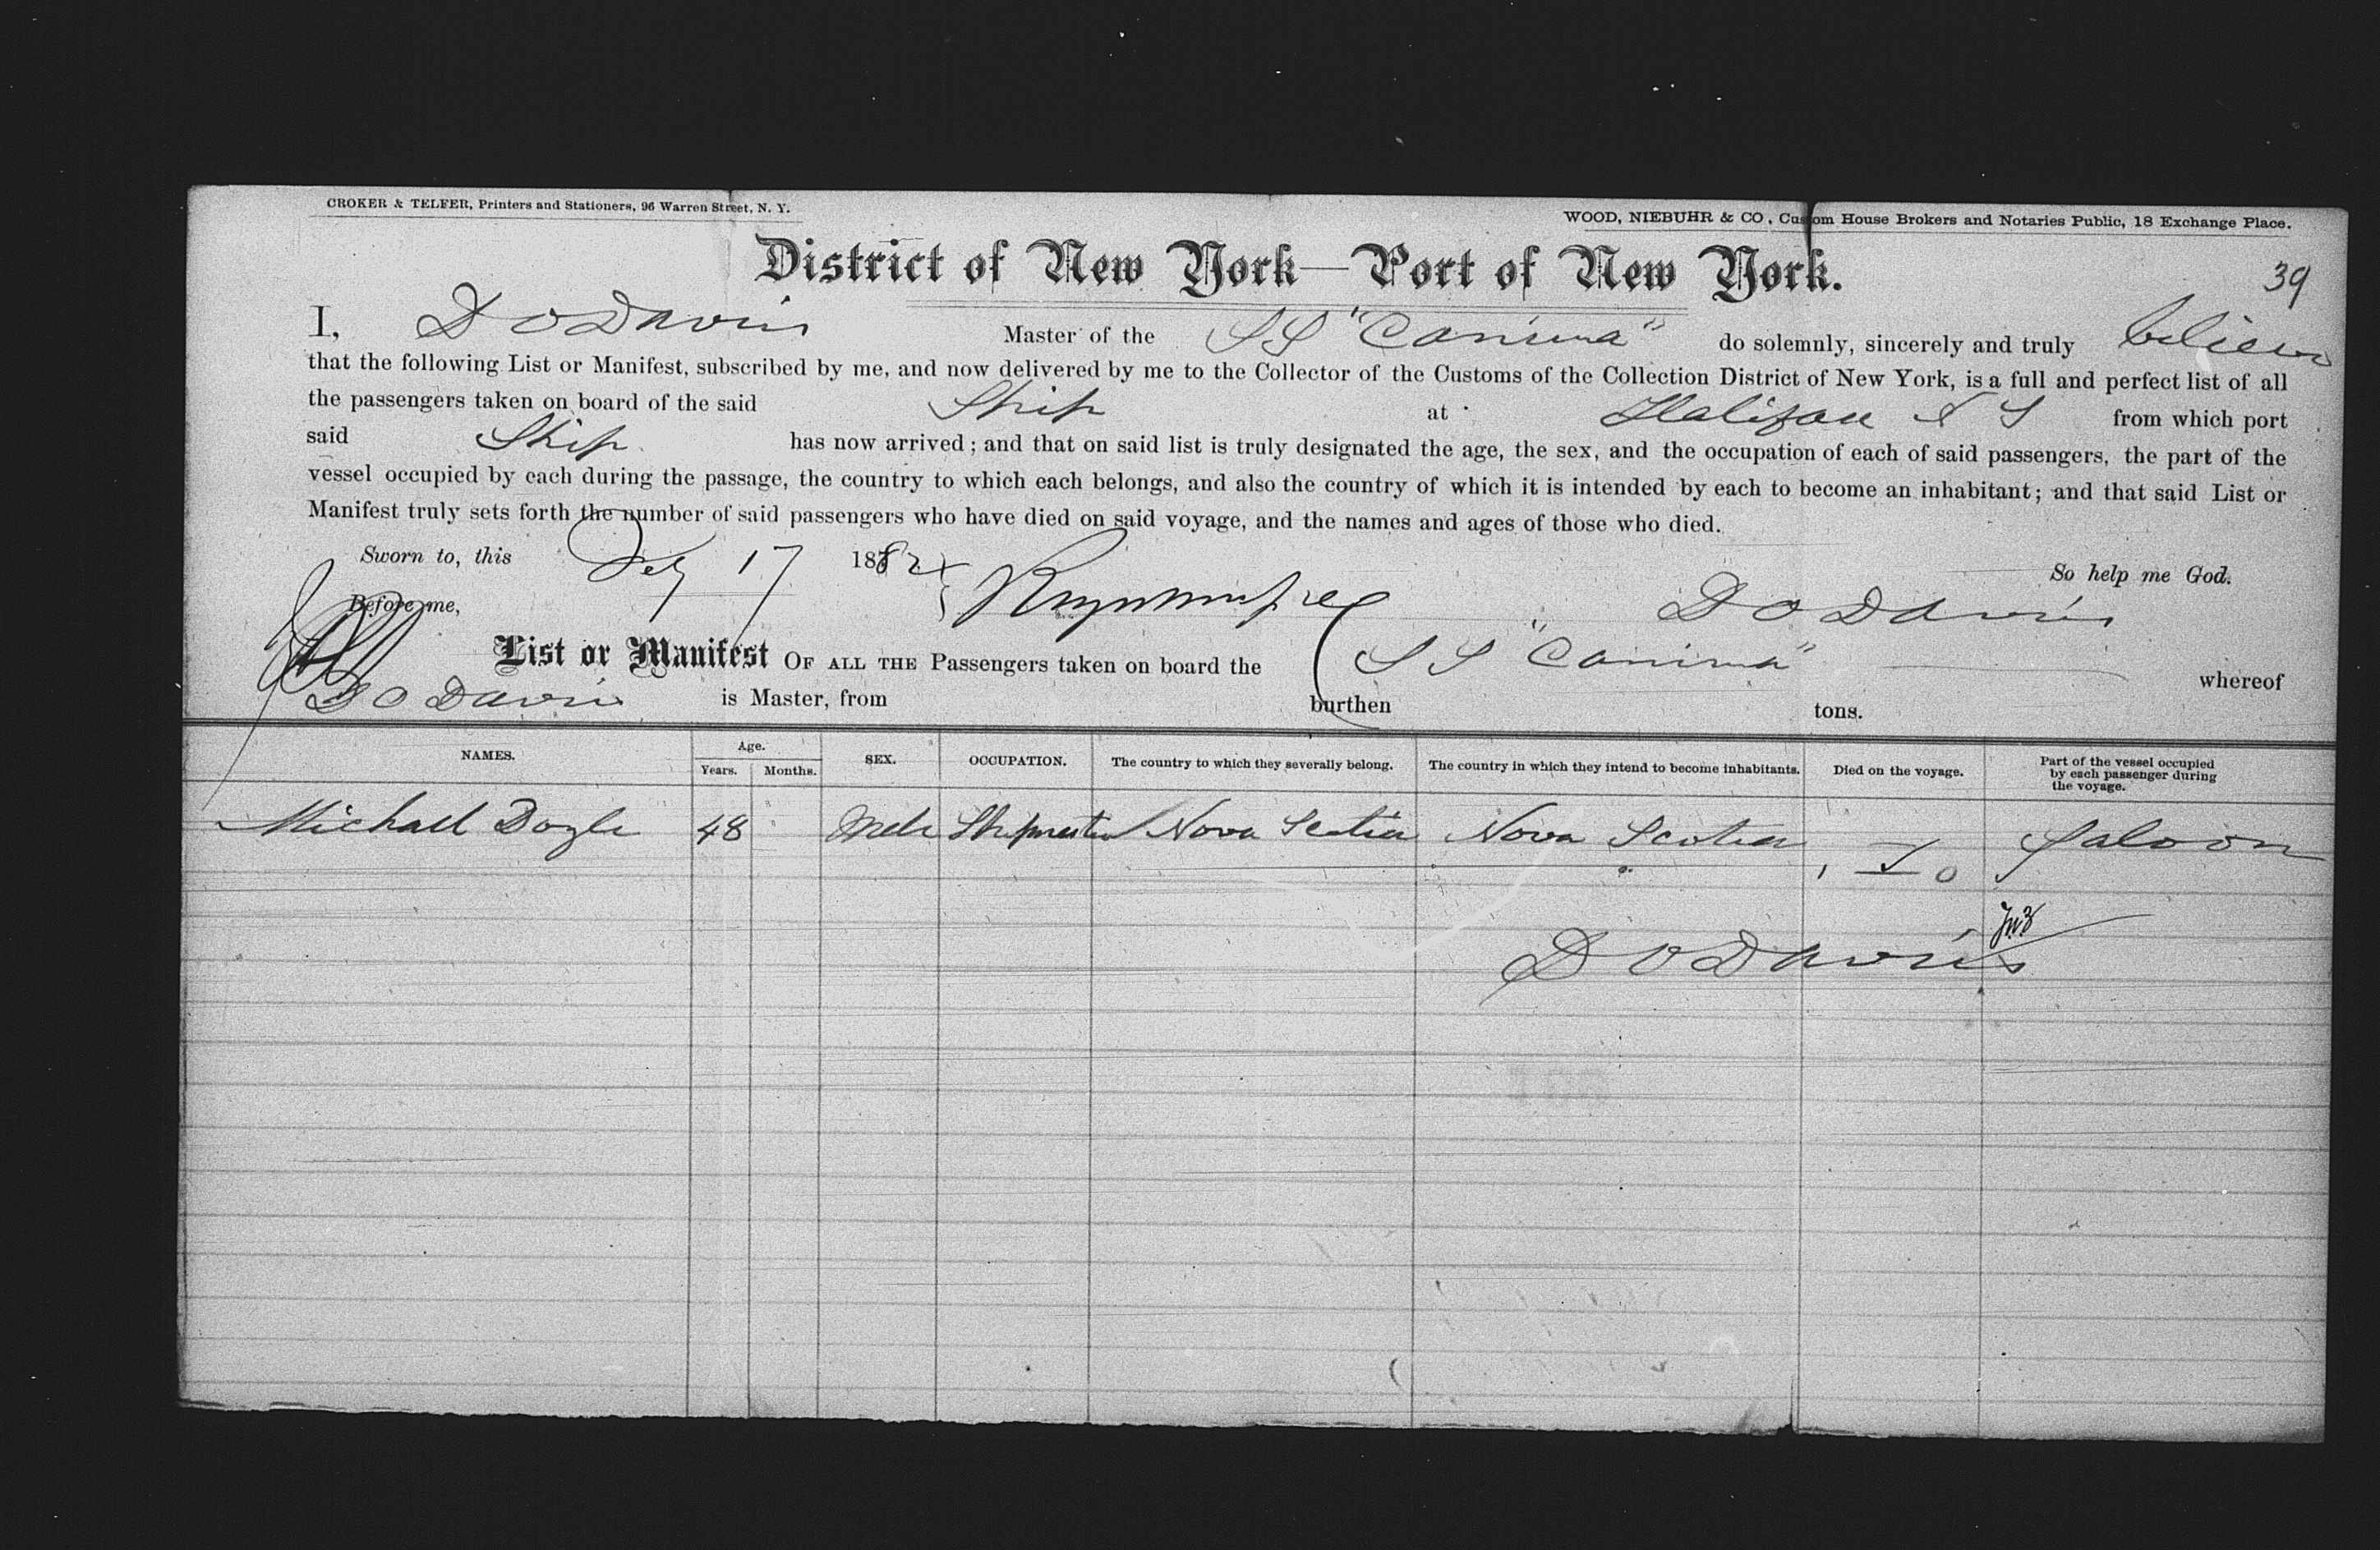 CROKER & TELFER, Printers and Stationers, 96 Warren Street, N. Y.
WOOD, NIEBUHR & CO., Custom House Brokers and Notaries Public, 18 Exchange Place.
District of New York—Port of New York.
39
I, D O Davis Master of the SS "Canima" do solemnly, sincerely and truly believe
that the following List or Manifest, subscribed by me, and now delivered by me to the Collector of the Customs of the Collection District of New York, is a full and perfect list of all
the passengers taken on board of the said Ship at Halifax N S from which port
said Ship has now arrived; and that on said list is truly designated the age, the sex, and the occupation of each of said passengers, the part of the
vessel occupied by each during the passage, the country to which each belongs, and also the country of which it is intended by each to become an inhabitant; and that said List or
Manifest truly sets forth the number of said passengers who have died on said voyage, and the names and ages of those who died.
Sworn to, this Feby 17 1882 So help me God.
Before me, D O Davis
List or Manifest OF ALL THE Passengers taken on board the SS "Canima" whereof
D O Davis is Master, from burthen tons.
NAMES. Age. Years. Months. SEX. OCCUPATION. The country to which they severally belong. The country in which they intend to become inhabitants. Died on the voyage. Part of the vessel occupied by each passenger during the voyage.
Michael Doyle 48 Male Shipmaster Nova Scotia Nova Scotia Saloon
D O Davis